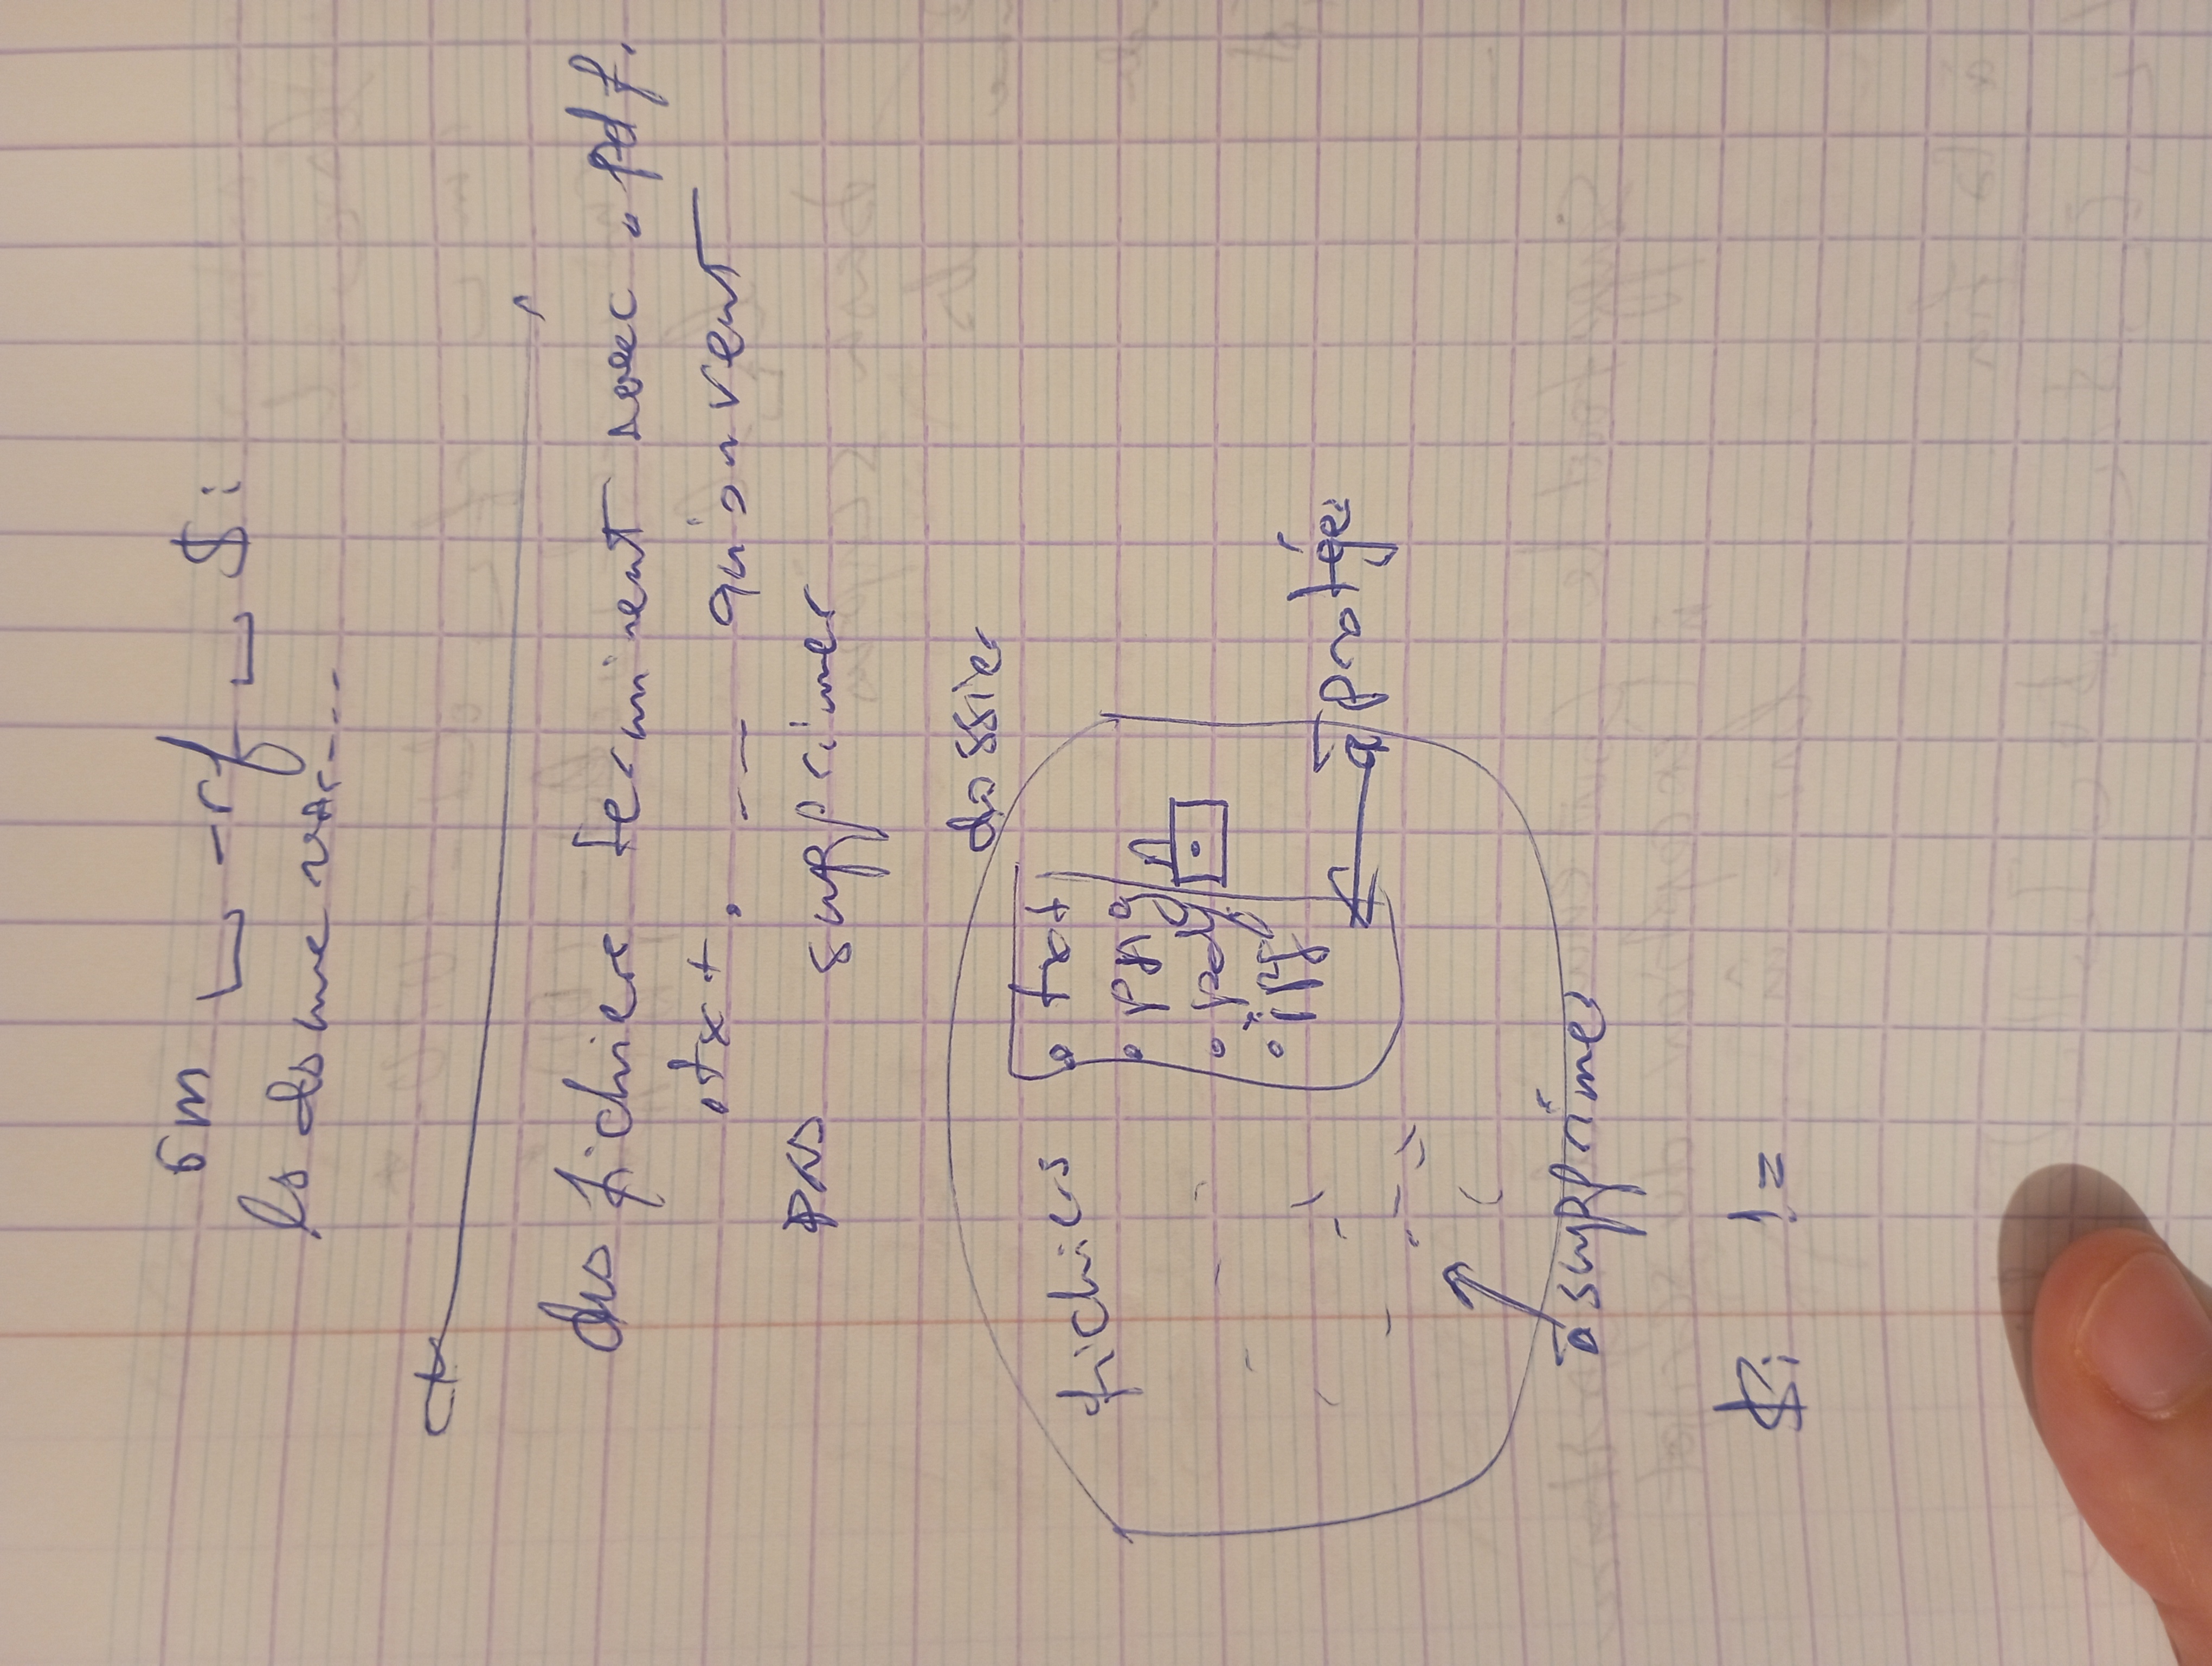 rm ⎵ -rf ⎵ $i
ls ds une var----
des fichiers terminent avec .pdf.
.txt. -- qu'on veut
pas supprimer
dossier
fichiers
• txt
• png
• pdf
• jpg
à protéger
à supprimer
$i !=